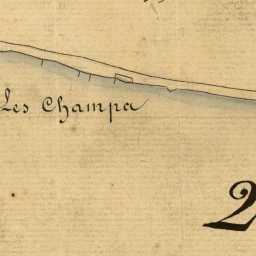 Les Champa
2